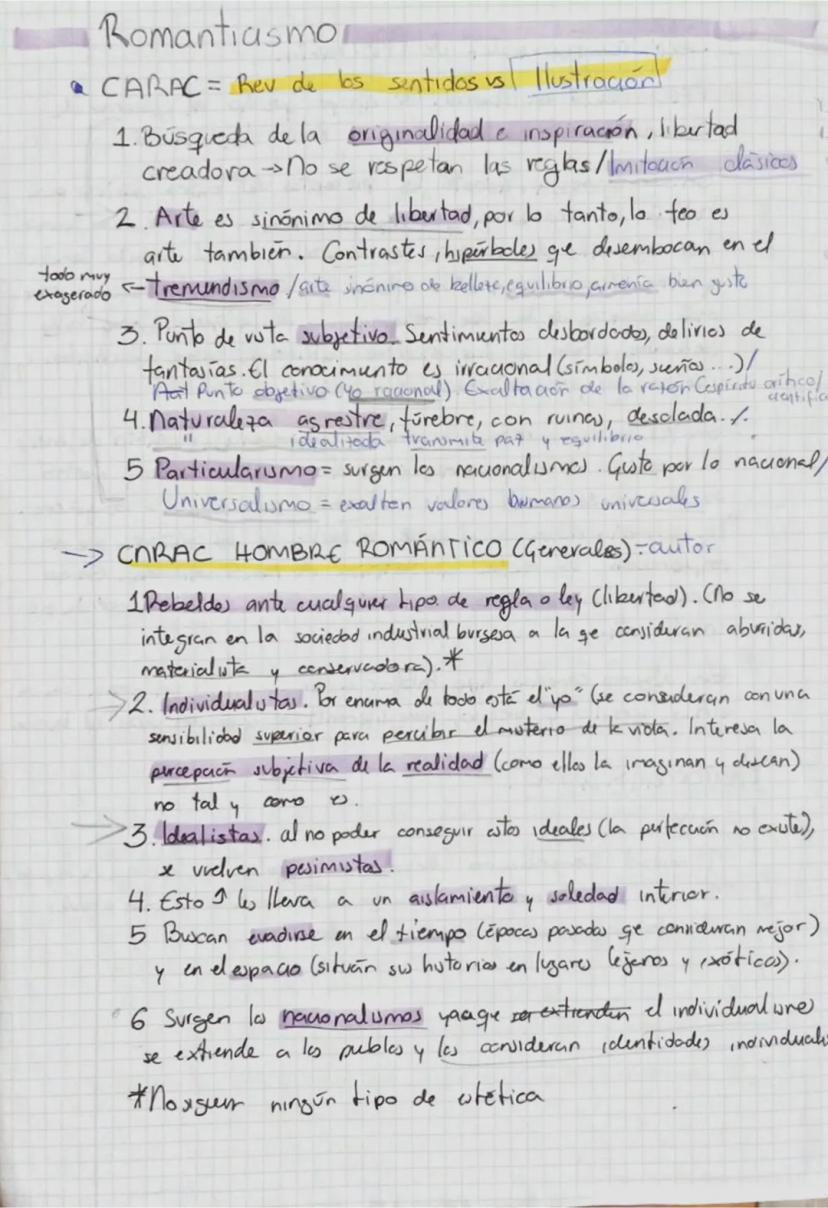 Romanticismo
• CARAC = Rev de los sentidos vs Ilustración
1. Búsqueda de la originalidad e inspiración, libertad
creadora → No se respetan las reglas/Imitación clásicos
2. Arte es sinónimo de libertad, por lo tanto, lo feo es
arte también. Contrastes, hipérboles qe desembocan en el
todo muy
exagerado ← Tremendismo /arte sinónimo de belleza, equilibrio, armonía bien gusto
3. Punto de vista subjetivo. Sentimientos desbordados, delirios de
fantasías. El conocimiento es irracional (símbolos, sueños...)/
Punto objetivo (yo racional) Exaltación de la razón (espíritu crítico/
científico
4. Naturaleza agrestre, fúrebre, con ruinas, desolada. /.
" idealizada transmite paz y equilibrio
5 Particularismo = surgen los nacionalismos. Gusto por lo nacional/
Universalismo = exaltan valores humanos universales
→ CARAC HOMBRE ROMÁNTICO (Generales) = autor
1 Rebeldes ante cualquier tipo de regla o ley (libertad). (No se
integran en la sociedad industrial burgesa a la qe consideran aburridas,
materialista y conservadora).*
2. Individualistas. Por encima de todo está el "yo" (se consideran con una
sensibilidad superior para percibir el misterio de la vida. Interesa la
percepción subjetiva de la realidad (como ellos la imaginan y desean)
no tal y como es.
3. Idealistas. al no poder conseguir estos ideales (la perfección no existe),
se vuelven pesimistas.
4. Esto ↑ les lleva a un aislamiento y soledad interior.
5 Buscan evadirse en el tiempo (épocas pasadas qe consideran mejor)
y en el espacio (sitúan sus historias en lugares lejanos y exóticos).
6 Surgen los nacionalismos yaqe se extienden el individualismo
se extiende a los pueblos y los consideran identidades individuals
*No siguen ningún tipo de estética